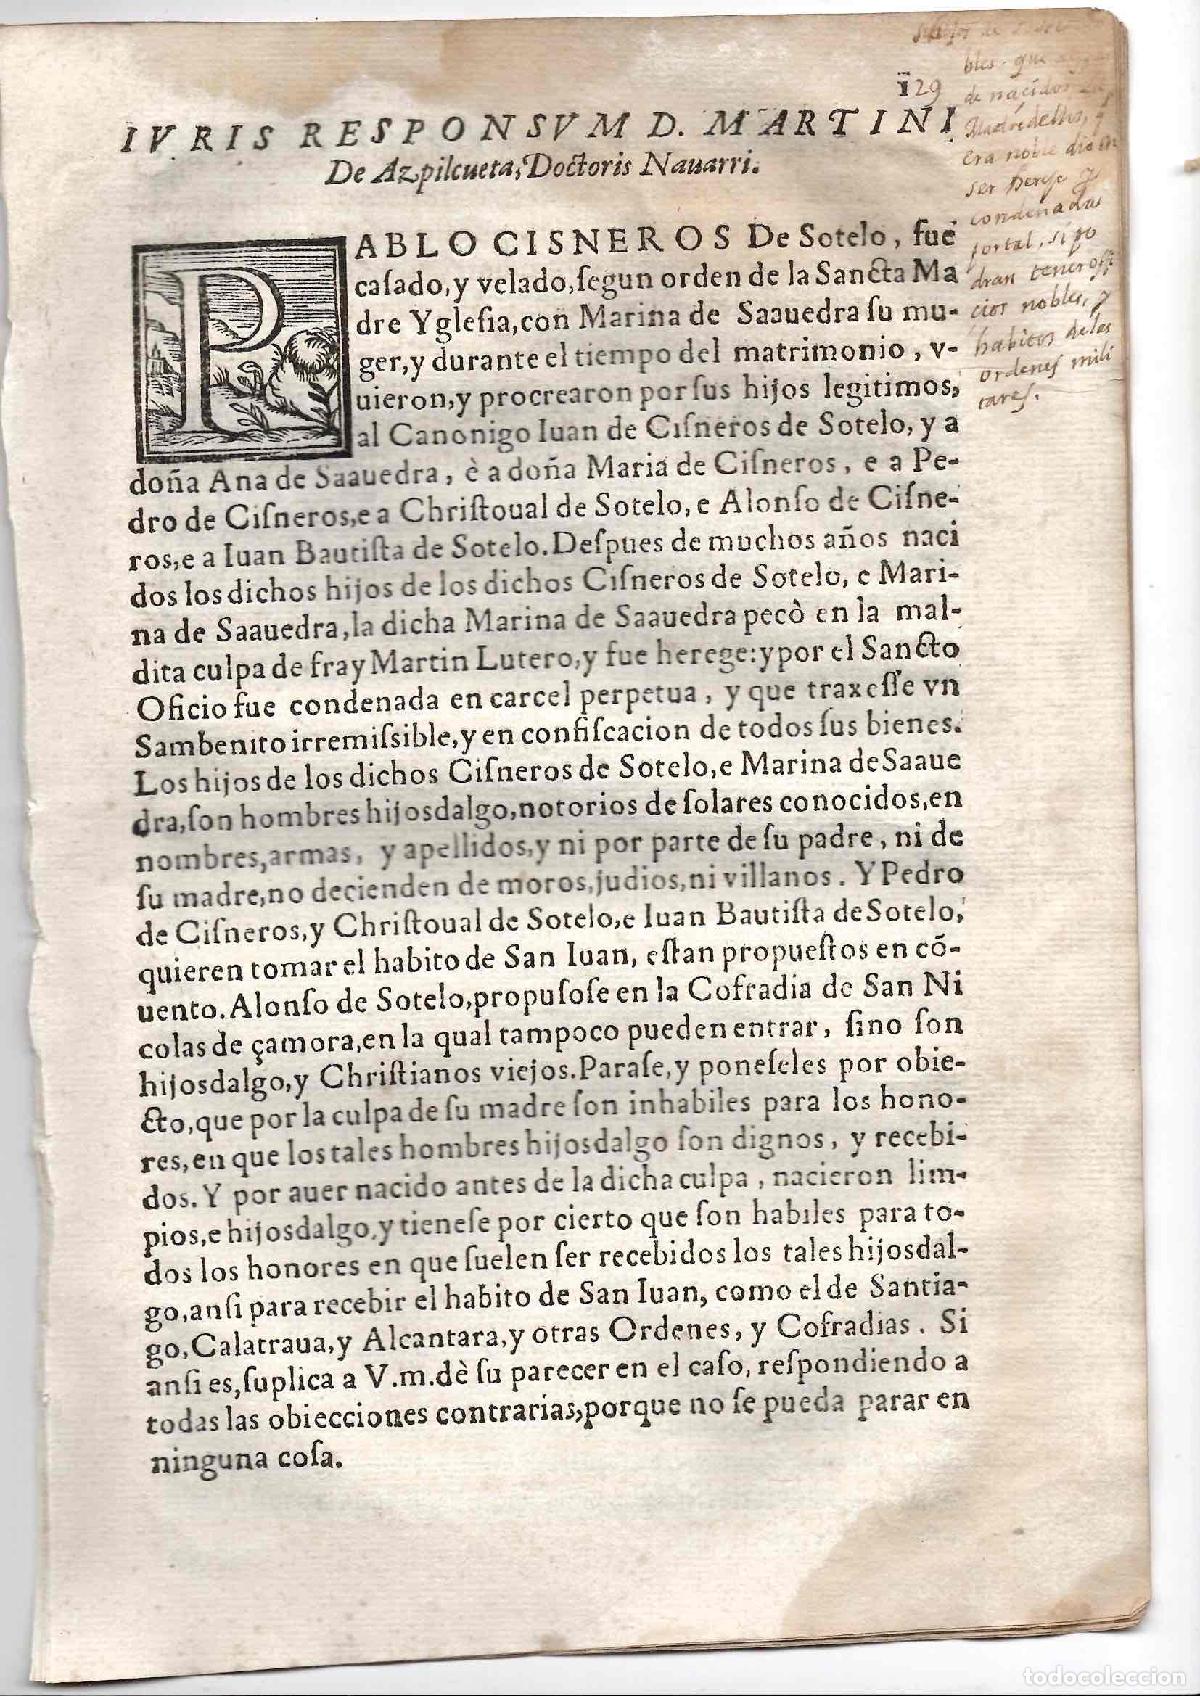 129
IVRIS RESPONSVM D. MARTINI
De Azpilcueta, Doctoris Nauarri.
PABLO CISNEROS De Sotelo, fue
caſado, y velado, ſegun orden de la Sancta Ma
dre Ygleſia, con Marina de Saauedra ſu mu-
ger, y durante el tiempo del matrimonio, v-
uieron, y procrearon por ſus hijos legitimos,
al Canonigo Iuan de Ciſneros de Sotelo, y a
doña Ana de Saauedra, è a doña Maria de Ciſneros, e a Pe-
dro de Ciſneros, e a Chriſtoual de Sotelo, e Alonſo de Ciſne-
ros, e a Iuan Bautiſta de Sotelo. Deſpues de muchos años naci
dos los dichos hijos de los dichos Ciſneros de Sotelo, e Mari-
na de Saauedra, la dicha Marina de Saauedra pecò en la mal-
dita culpa de fray Martin Lutero, y fue herege: y por el Sancto
Oficio fue condenada en carcel perpetua, y que traxeſſe vn
Sambenito irremiſsible, y en confiſcacion de todos ſus bienes.
Los hijos de los dichos Ciſneros de Sotelo, e Marina de Saaue
dra, ſon hombres hijosdalgo, notorios de ſolares conocidos, en
nombres, armas, y apellidos, y ni por parte de ſu padre, ni de
ſu madre, no decienden de moros, judios, ni villanos. Y Pedro
de Ciſneros, y Chriſtoual de Sotelo, e Iuan Bautiſta de Sotelo,
quieren tomar el habito de San Iuan, eſtan propueſtos en cõ-
uento. Alonſo de Sotelo, propuſoſe en la Cofradia de San Ni
colas de çamora, en la qual tampoco pueden entrar, ſino ſon
hijosdalgo, y Chriſtianos viejos. Paraſe, y poneſeles por obie-
cto, que por la culpa de ſu madre ſon inhabiles para los hono-
res, en que los tales hombres hijosdalgo ſon dignos, y recebi-
dos. Y por auer nacido antes de la dicha culpa, nacieron lim-
pios, e hijosdalgo, y tieneſe por cierto que ſon habiles para to-
dos los honores en que ſuelen ſer recebidos los tales hijosdal-
go, anſi para recebir el habito de San Iuan, como el de Santia-
go, Calatraua, y Alcantara, y otras Ordenes, y Cofradias. Si
anſi es, ſuplica a V.m. dè ſu parecer en el caſo, reſpondiendo a
todas las obiecciones contrarias, porque no ſe pueda parar en
ninguna coſa.
de
bles. que
de nacidos
Madre dellos, q
era noble dio en
ser hereje y
condenada
por tal, si po
dran tener offi
cios nobles, y
habitos de las
ordenes mili
tares.
todocoleccion